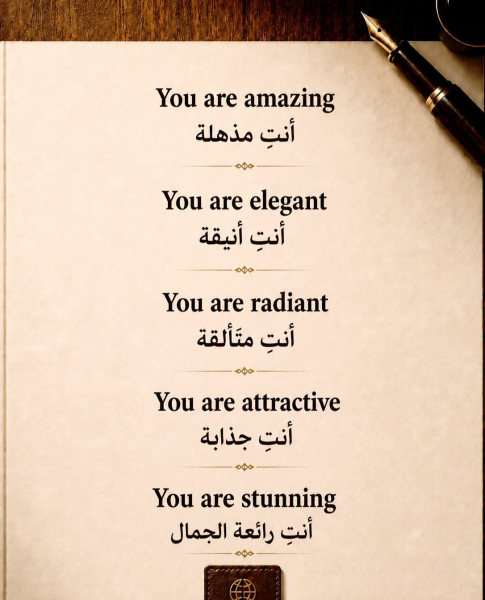 You are amazing
أنتِ مذهلة
You are elegant
أنتِ أنيقة
You are radiant
أنتِ متَألقة
You are attractive
أنتِ جذابة
You are stunning
أنتِ رائعة الجمال